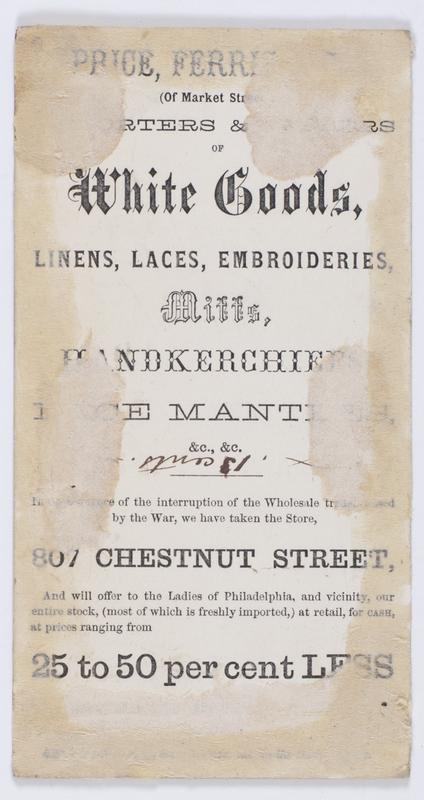 PRICE,
(Of Market
&
OF
White Goods,
LINENS, LACES, EMBROIDERIES,
Mitts,
HANDKERCHIEFS
LACE MANTLES,
&c., &c.
13 cents.
of the interruption of the Wholesale
by the War, we have taken the Store,
807 CHESTNUT STREET,
And will offer to the Ladies of Philadelphia, and vicinity, our
entire stock, (most of which is freshly imported,) at retail, for CASH,
at prices ranging from
25 to 50 per cent LESS